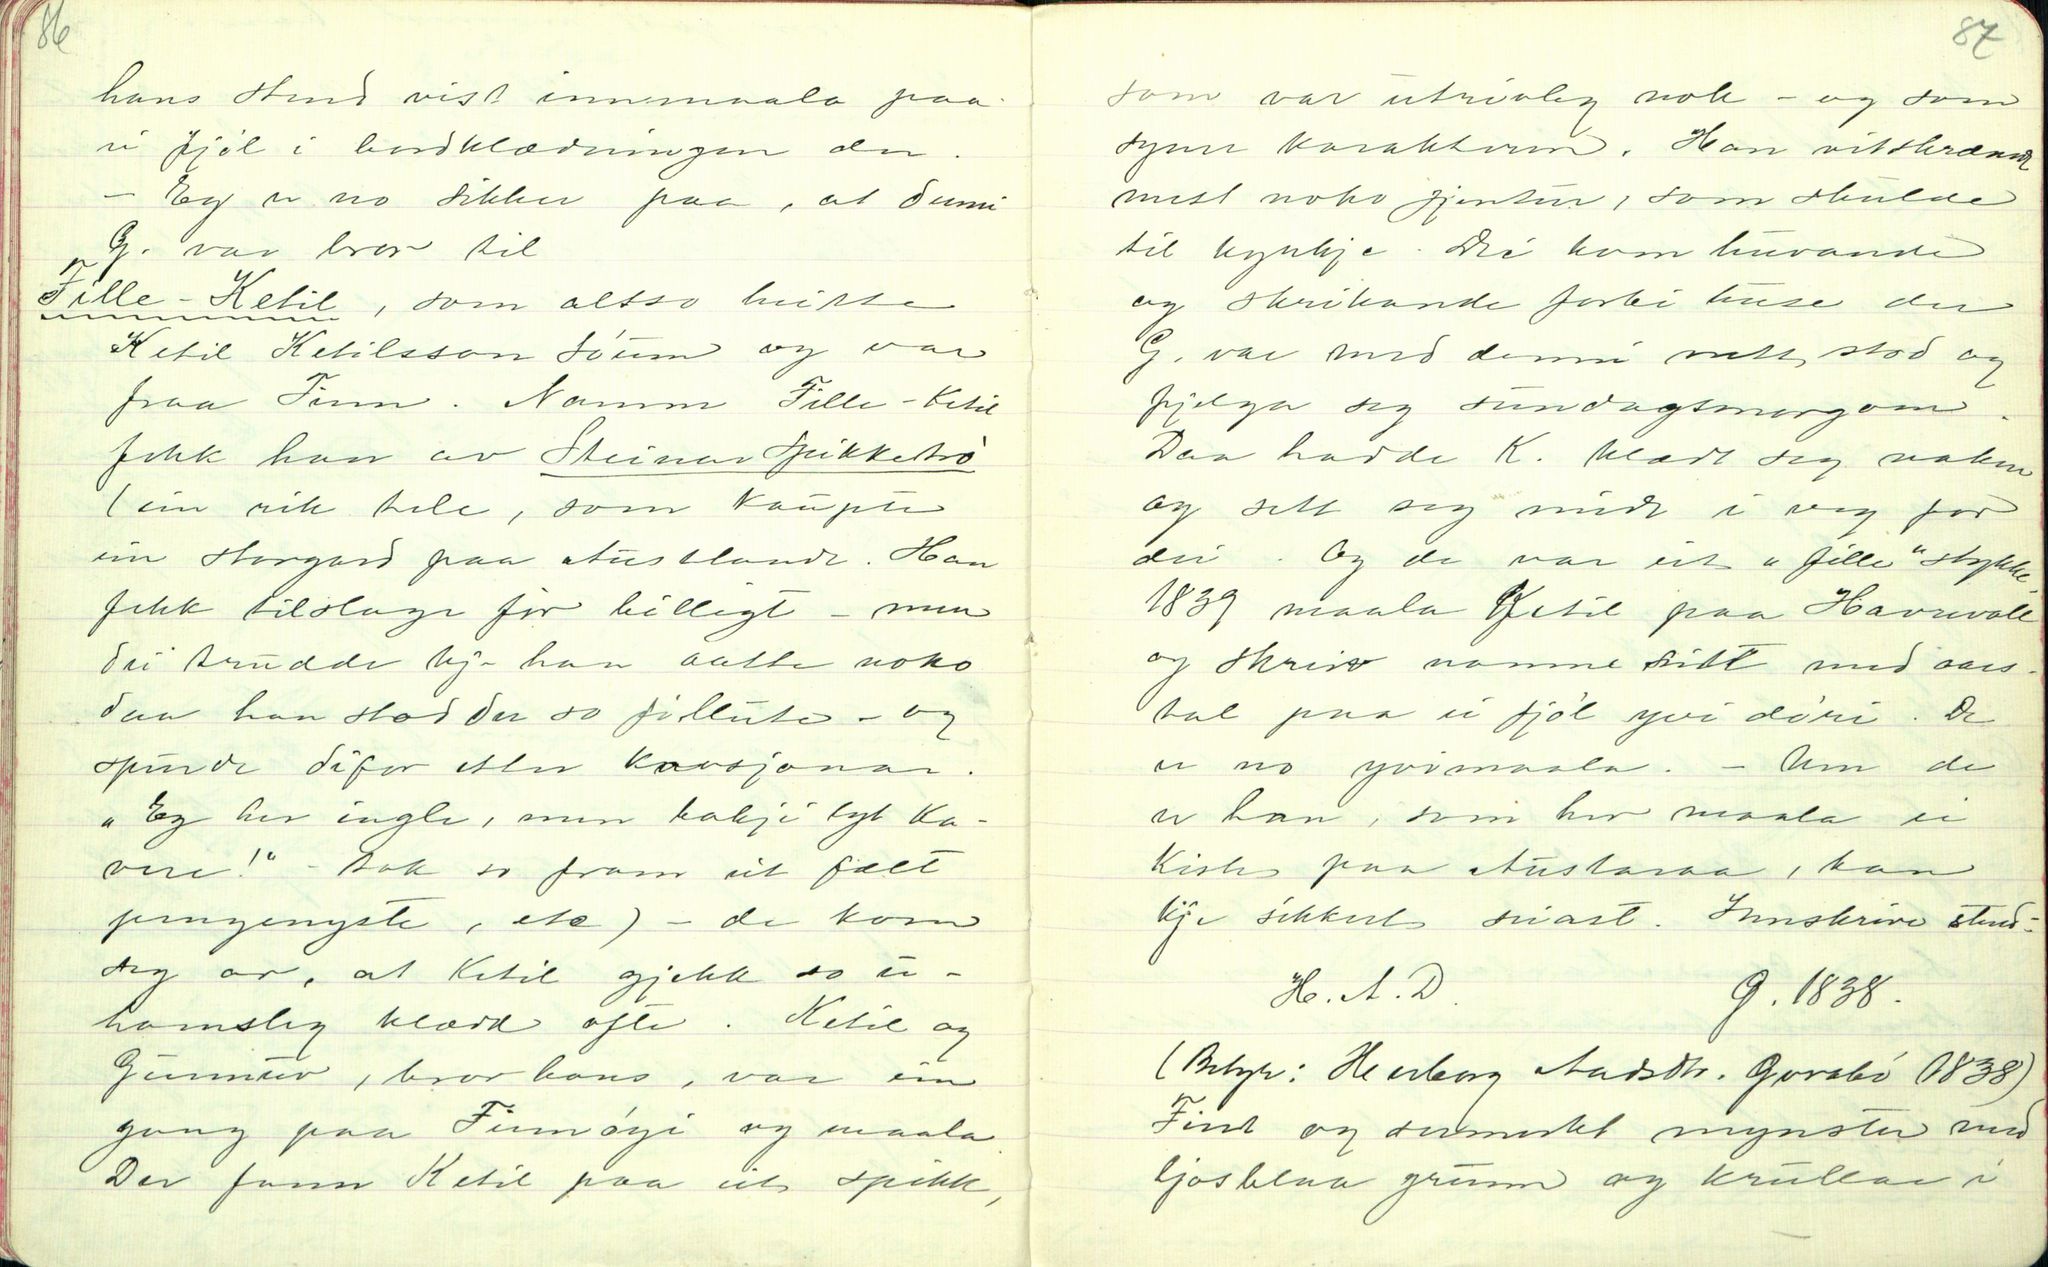 86
hans stend vist innmaala paa
ei fjöl i bordklædningen der.
- Eg er no sikker paa, at denne
G. var bror til
Fille-Ketil, som altso heitte
Ketil Ketilsson Söum og var
fraa Finn. Namnn Fille-Ketil
fekk han av Steinar Spikketrö
(ein rik tele, som kaupte
ein storgard paa Austlandt. Han
fekk tilslage for billigt - men
dei trudde kje han aatte noko
daa han stod der so fillute - og
spurde difor etter kausjonar.
"Eg her ingle, men bakje lyt ka-
vere!" - tok so fram eit fælt
pengenyste, etc) - de kom
seg av, at Ketil gjekk so u-
hamsleg klædd ofte. Ketil og
Gunnuv, bror hans, var ein
gong paa Finnöyi og maala
Der fann Ketil paa eit spikk,
87
som var utrivleg nok - og som
syner karakteren. Han vitskræmde
mest noko gjentur, som skulde
til kyrkje. Dei kom huvande
og skrikande forbi huse der
G. var med denni nett stod og
fjelga seg sundagsmorgonn.
Daa hadde K. klædt seg naken
og sett seg midt i veg for
dei. Og de var eit "fille" stykke.
1839 maala Ketil paa Havrevoll
og skreiv namne sitt med aars-
tal paa ei fjöl yvi döri. De
er no yvimaala. - Um de
er han, som her maala ei
Kiste paa Austaraa, kan
kje sikkert seiast. Innskrive stend:
H. A. D. G. 1838.
(Betyr: Herborg Aadsdtr. Garabö 1838)
Fint og sermerkt mynster med
ljosblaa grunn og krullar i